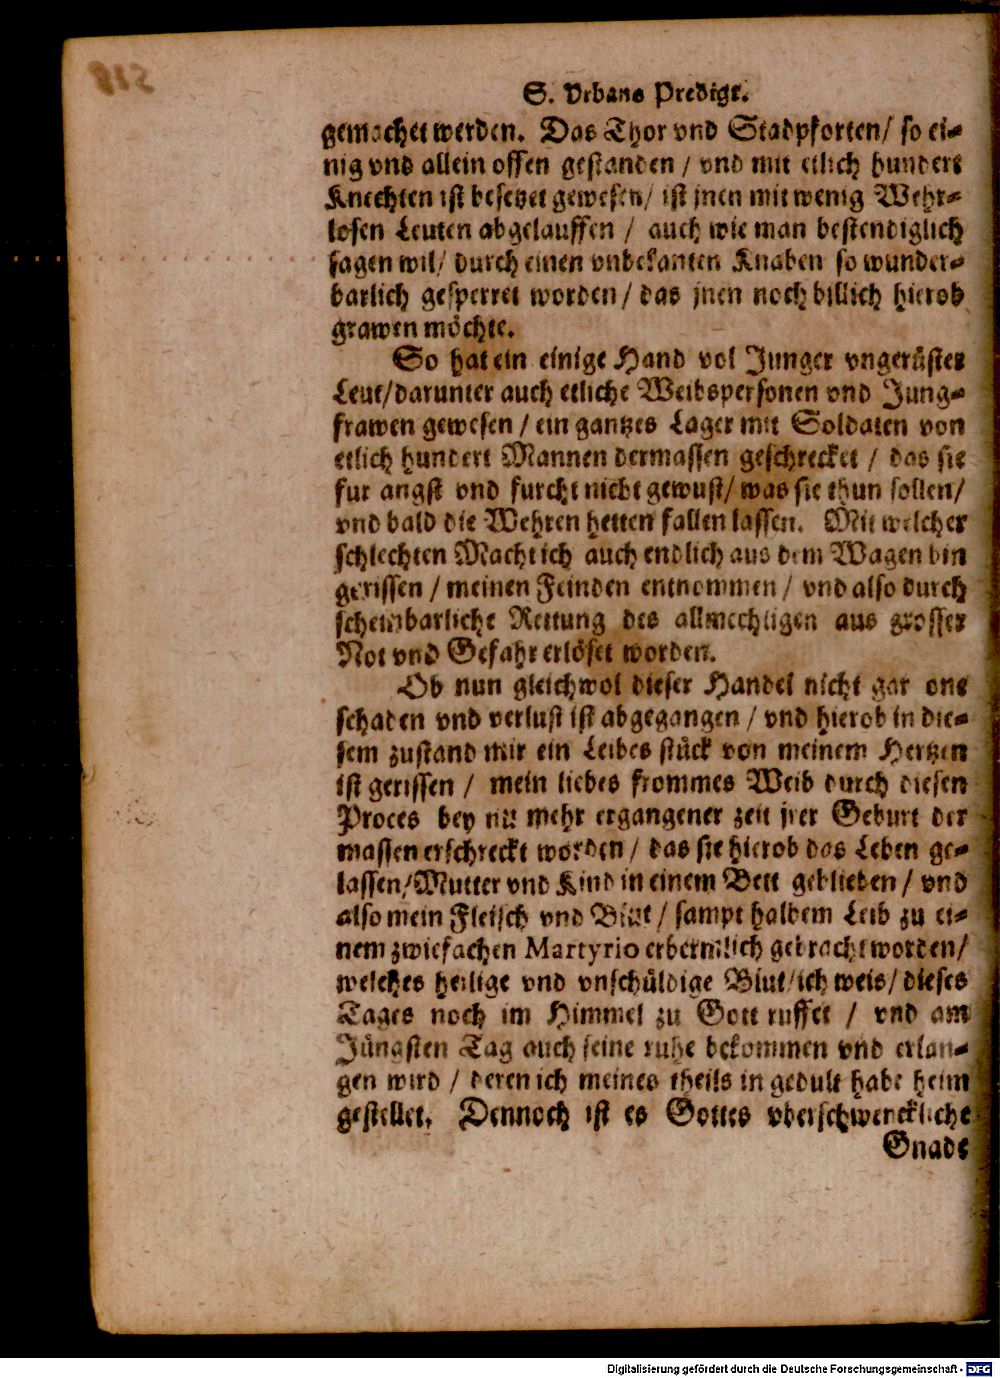 S. Vrbans Predigt.
gemachet werden. Das Thor vnd Stadpforten/ so ei-
nig vnd allein offen gestanden / vnd mit etlich hundert
Knechten ist besetzet gewesen/ ist jnen mit wenig Wehr-
losen Leuten abgelauffen / auch wie man bestendiglich
sagen wil/ durch einen vnbekanten Knaben so wunder-
barlich gesperret worden / das jnen noch billich hierob
grawen möchte.
So hat ein einige Hand vol Junger vngerüster
Leut/darunter auch etliche Weibspersonen vnd Jung-
frawen gewesen / ein gantzes Lager mit Soldaten von
etlich hundert Mannen dermassen geschrecket / das sie
fur angst vnd furcht nicht gewust/ was sie thun sollen/
vnd bald die Wehren hetten fallen lassen. Mit welcher
schlechten Macht ich auch endlich aus dem Wagen bin
gerissen / meinen Feinden entnommen / vnd also durch
scheinbarliche Rettung des allmechtigen aus grosser
Not vnd Gefahr erlöset worden.
Ob nun gleichwol dieser Handel nicht gar one
schaden vnd verlust ist abgegangen / vnd hierob in die-
sem zustand mir ein Leibes stück von meinem Hertzen
ist gerissen / mein liebes frommes Weib durch diesen
Proces bey nit mehr ergangener zeit jrer Geburt der
massen erschreckt worden / das sie hierob das Leben ge-
lassen/Mutter vnd Kind in einem Bett geblieben / vnd
also mein Fleisch vnd Blut / sampt halbem Leib zu ei-
nem zwiefachen Martyrio erbermlich gebracht worden/
welches heilige vnd vnschüldige Blut/ich weis/ dieses
Tages noch im Himmel zu Gott ruffet / vnd am
Jüngsten Tag auch seine ruhe bekommen vnd erlan-
gen wird / deren ich meines theils in gedult habe heim
gestellet. Dennoch ist es Gottes vberschwenckliche
Gnade
Digitalisierung gefördert durch die Deutsche Forschungsgemeinschaft - DFG